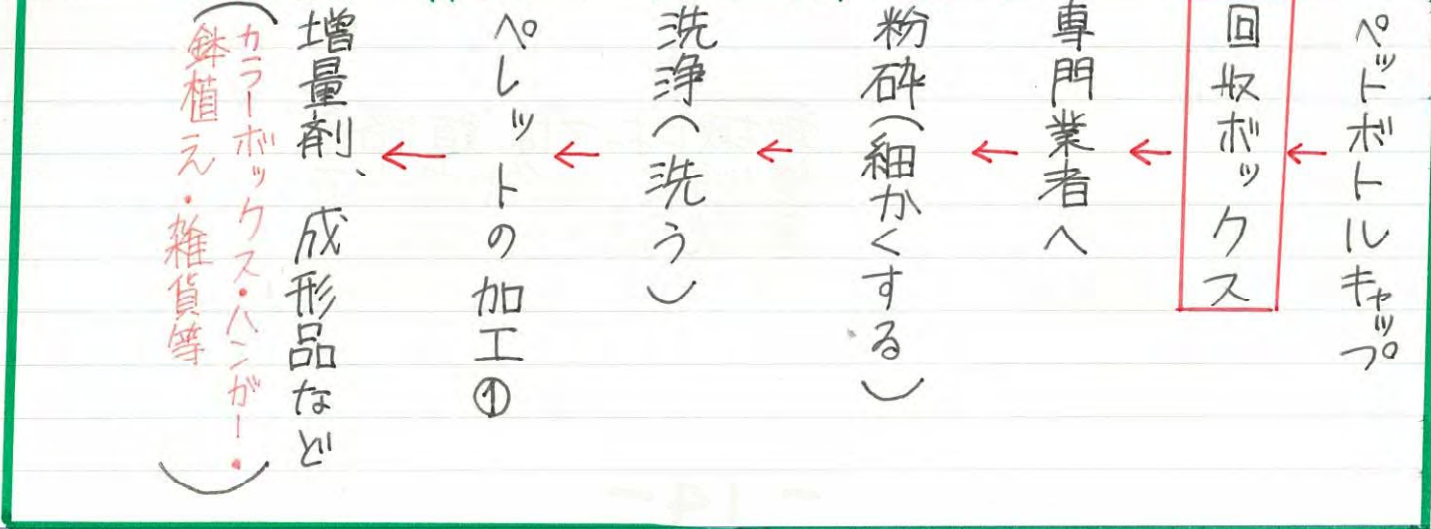 ペットボトルキャップ
←
回収ボックス
←
専門業者へ
←
粉砕(細かくする)
←
洗浄(洗う)
←
ペレットの加工①
←
増量剤、成形品など
(カラーボックス・ハンガー・
鉢植え・雑貨等)